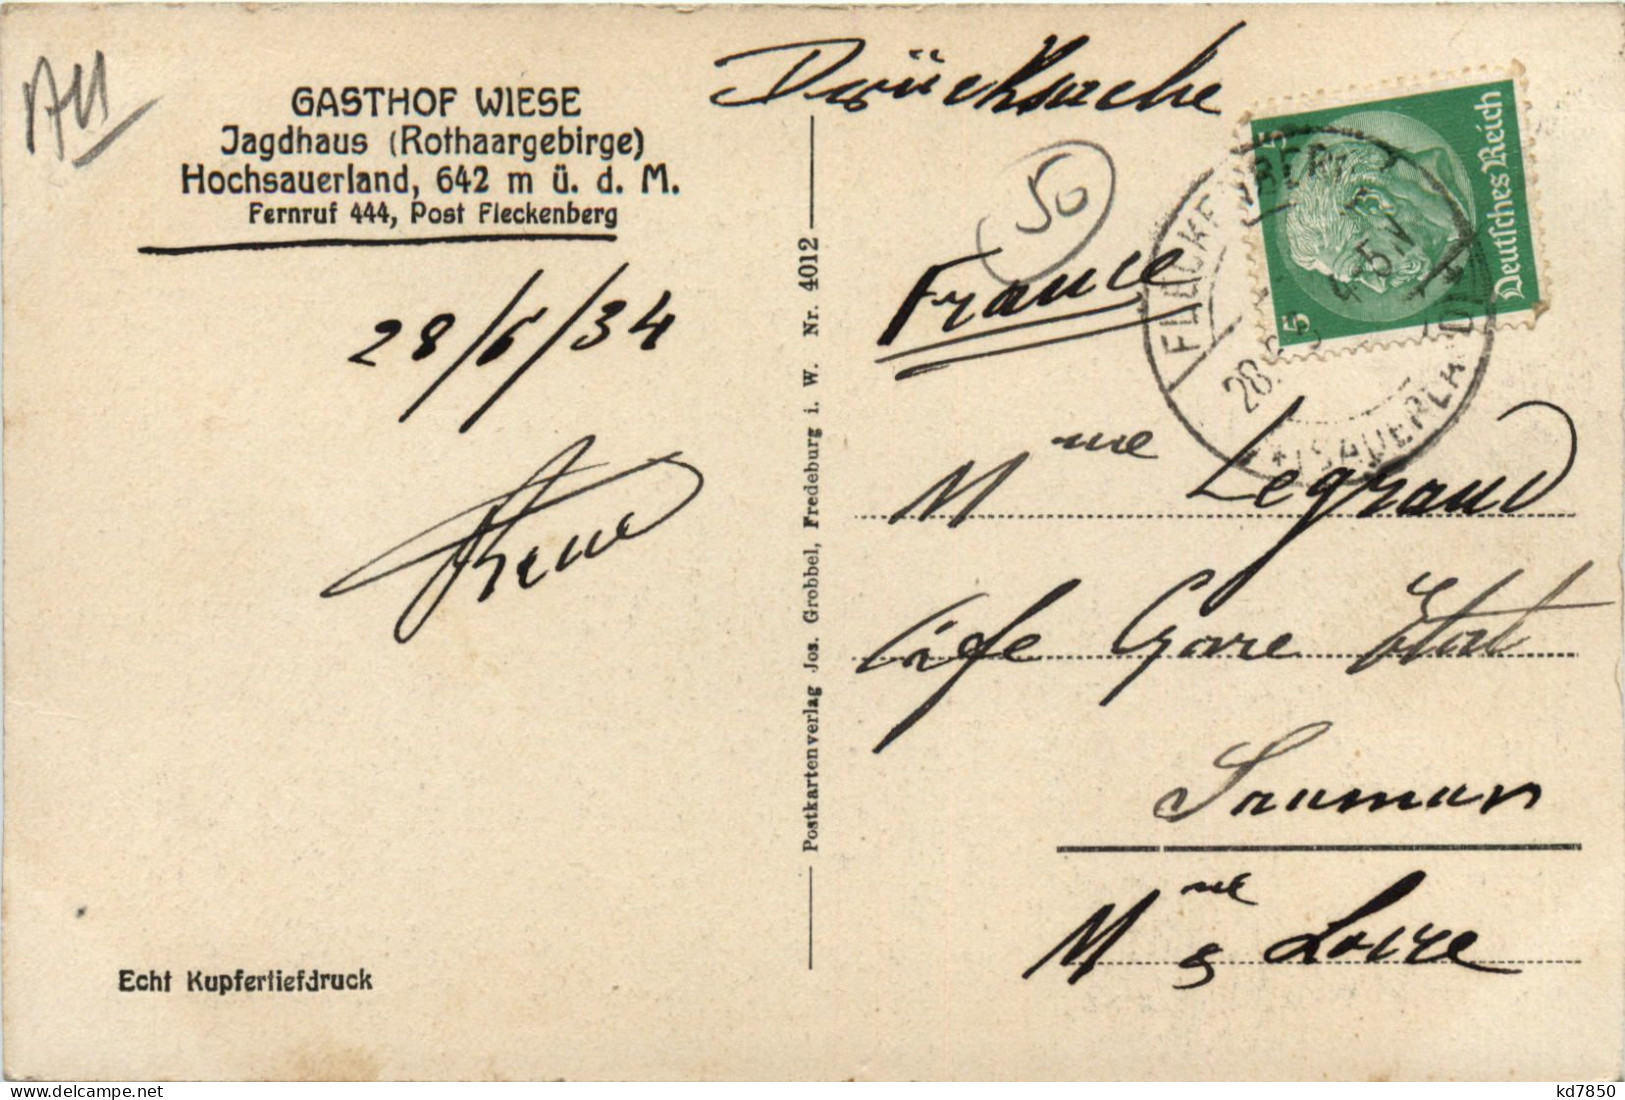 GASTHOF WIESE
Jagdhaus (Rothaargebirge)
Hochsauerland, 642 m ü. d. M.
Fernruf 444, Post Fleckenberg
28/6/34
Echt Kupfertiefdruck
Postkartenverlag Jos. Grobbel, Fredeburg i. W. Nr. 4012
Drücksache
50
France
Deutsches Reich
5
5
(SAUERLAND)
Mme Legrand
Café Gare Etat
Saumur
Mne & Loire
kd7850